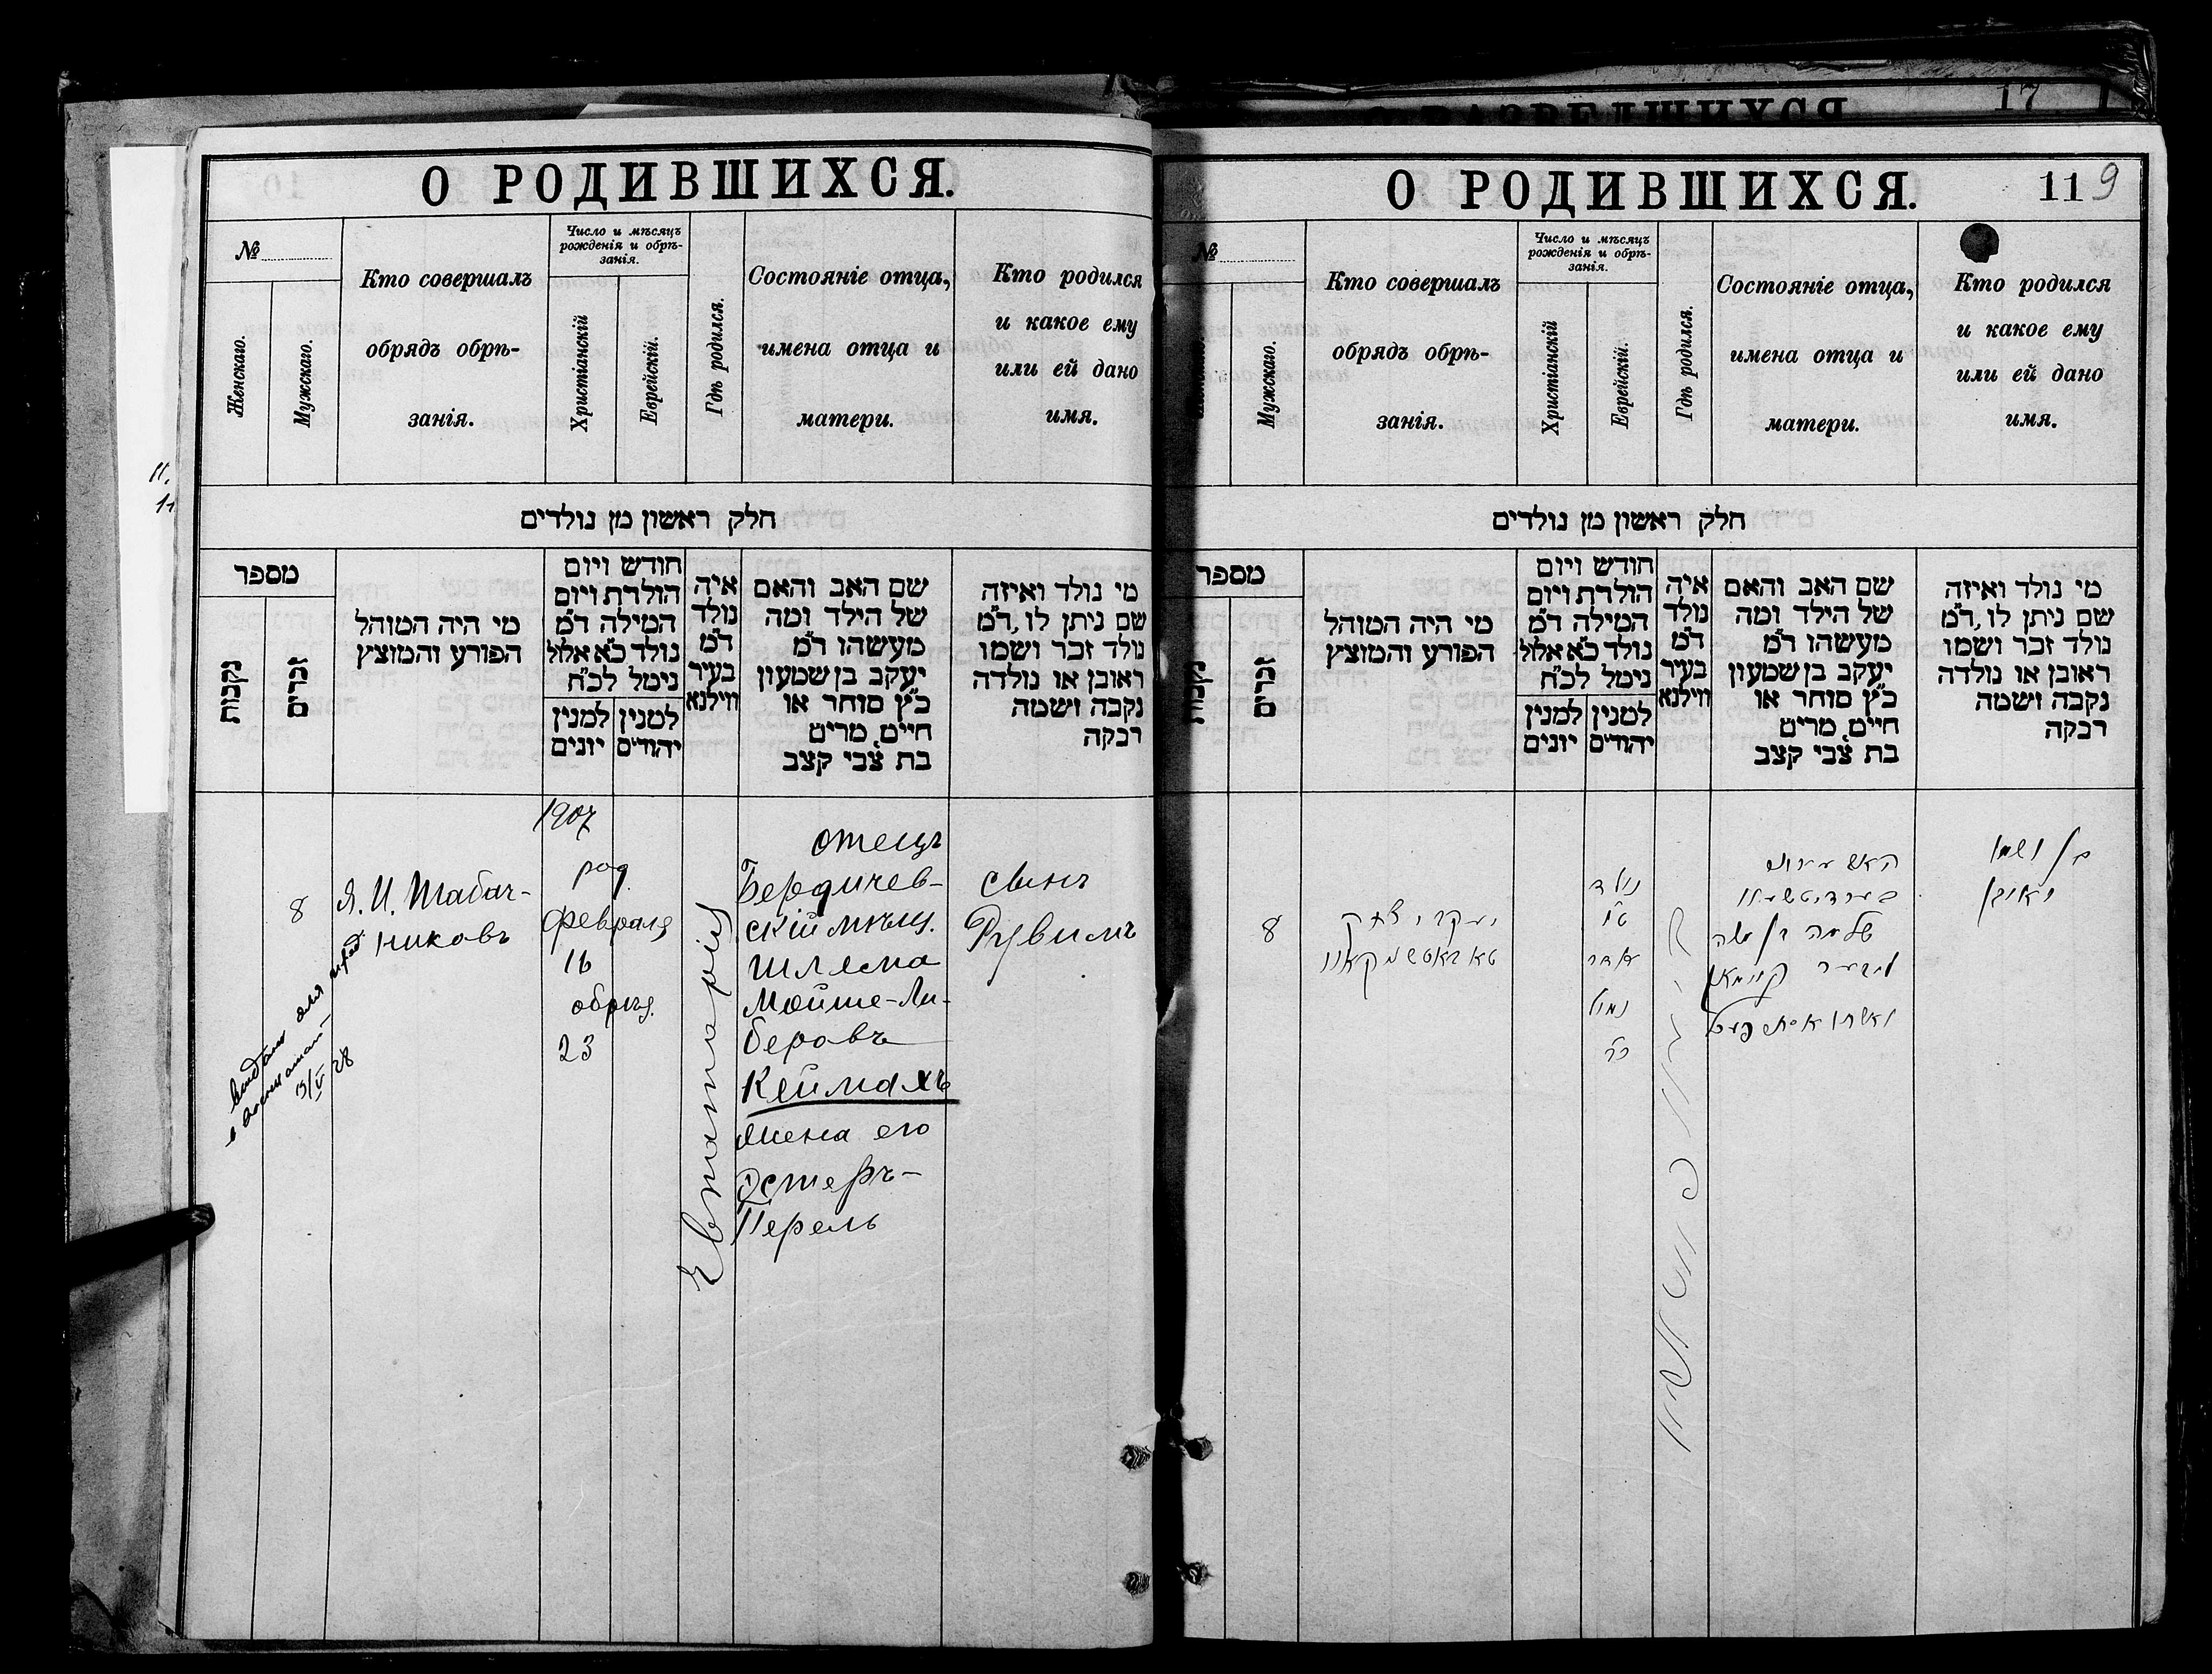 17
О РАЗВЕДШИХСЯ
О РОДИВШИХСЯ.
№
Женскаго.
Мужскаго.
Кто совершалъ
обрядъ обрѣ-
занія.
Число и мѣсяцъ
рожденія и обрѣ-
занія.
Христіанскій
Еврейскій.
Гдѣ родился.
Состояніе отца,
имена отца и
матери.
Кто родился
и какое ему
или ей дано
имя.
חלק ראשון מן נולדים
מספר
נקבות
זכרים
מי היה המוהל
הפורע והמוצץ
חודש ויום
הולדת ויום
המילה ד״מ
נולד כ״א אלול
נימל לכ״ח
למנין יהודים
למנין יונים
איה
נולד
ד״מ
בעיר
ווילנא
שם האב והאם
של הילד ומה
מעשהו ד״מ
יעקב בן שמעון
כ״ץ סוחר או
חייט, מרים
בת צבי קצב
מי נולד ואיזה
שם ניתן לו, ד״מ
נולד זכר ושמו
ראובן או נולדה
נקבה ושמה
רבקה
8
Я. И. Табач-
никовъ
1907
род.
февраля
16
обрѣз.
23
Евпаторія
отецъ
Бердичев-
скій мѣщ.
Шлема
Мойше-Ли-
беровъ
Кеймахъ
жена его
Эстеръ-
Перель
сынъ
Рувимъ
28
О РОДИВШИХСЯ.
11 9
№
Мужскаго.
Кто совершалъ
обрядъ обрѣ-
занія.
Число и мѣсяцъ
рожденія и обрѣ-
занія.
Христіанскій
Еврейскій.
Гдѣ родился.
Состояніе отца,
имена отца и
матери.
Кто родился
и какое ему
или ей дано
имя.
חלק ראשון מן נולדים
מספר
נקבות
זכרים
מי היה המוהל
הפורע והמוצץ
חודש ויום
הולדת ויום
המילה ד״מ
נולד כ״א אלול
נימל לכ״ח
למנין יהודים
למנין יונים
איה
נולד
ד״מ
בעיר
ווילנא
שם האב והאם
של הילד ומה
מעשהו ד״מ
יעקב בן שמעון
כ״ץ סוחר או
חייט, מרים
בת צבי קצב
מי נולד ואיזה
שם ניתן לו, ד״מ
נולד זכר ושמו
ראובן או נולדה
נקבה ושמה
רבקה
8
נולד
אדר
נמול
שלמה בן משה
בן ושמו
ראובן